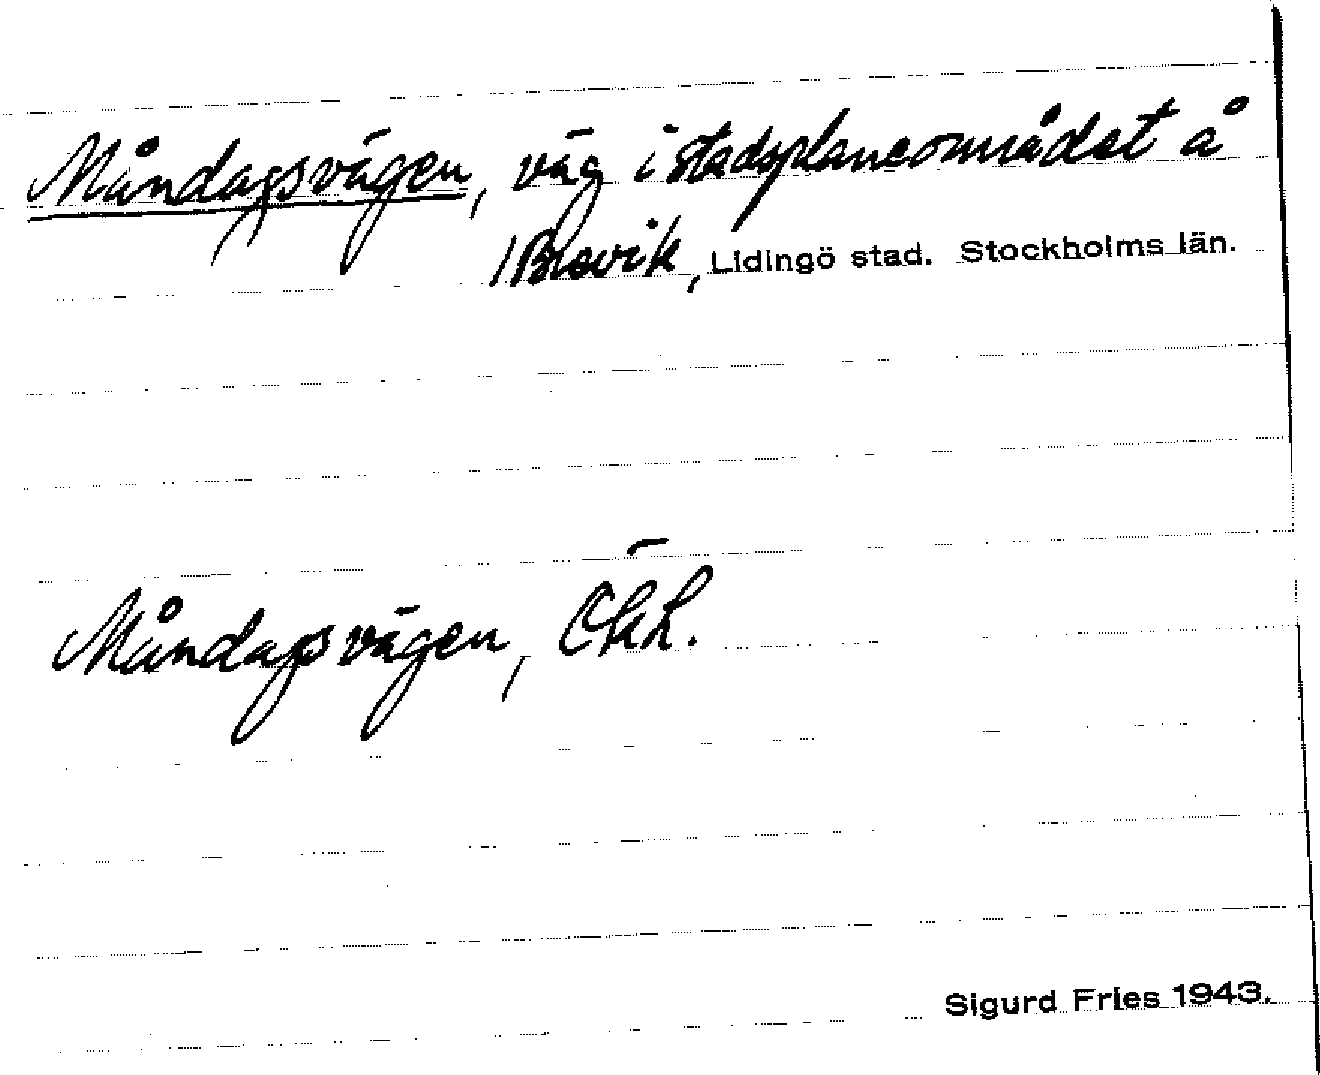 Måndagsvägen, väg i stadsplaneområdet å
/Brevik, Lidingö stad. Stockholms län.
Måndagsvägen,
Sigurd Fries 1943.